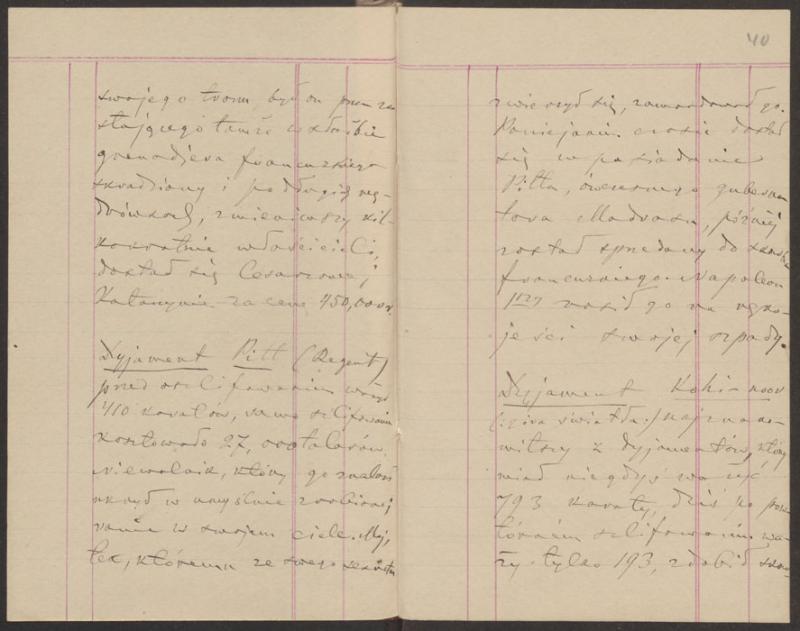 swojego tronu, był on przez zo
stającego tamże w służbie
grenadjera francuzkiego
skradziony i po długich wę-
drówkach, zmieniwszy kil-
kakrotnie właścicieli,
dostał się Cesarzowej
Katarzynie za cenę 450,000 r.
Dyjament Pitt (Regent)
przed oszlifowaniem ważył
410 karatów, samo szlifowanie
kosztowało 27,000 talarów.
Niewolnik, który go znalazł
ukrył w umyślnie zrobionej
ranie w swojem ciele. Maj,
tek, któremu ze swego sekretu
40
zwierzył się, zamordował go.
Poniejakim czasie dostał
się w posiadanie
Pitta, ówczesnego guberna
tora Madrasu, później
został sprzedany do skarbu
francuzkiego. Napoleon
nosił go na ręko-
jeści swojej szpady.
Dyjament Kohi-noor
światła) najznako-
mitszy z dyjamentów, który
miał niegdyś ważyć
793 karaty, dziś po pow
tórnem szlifowaniu wa-
ży tylko 193, zdobił